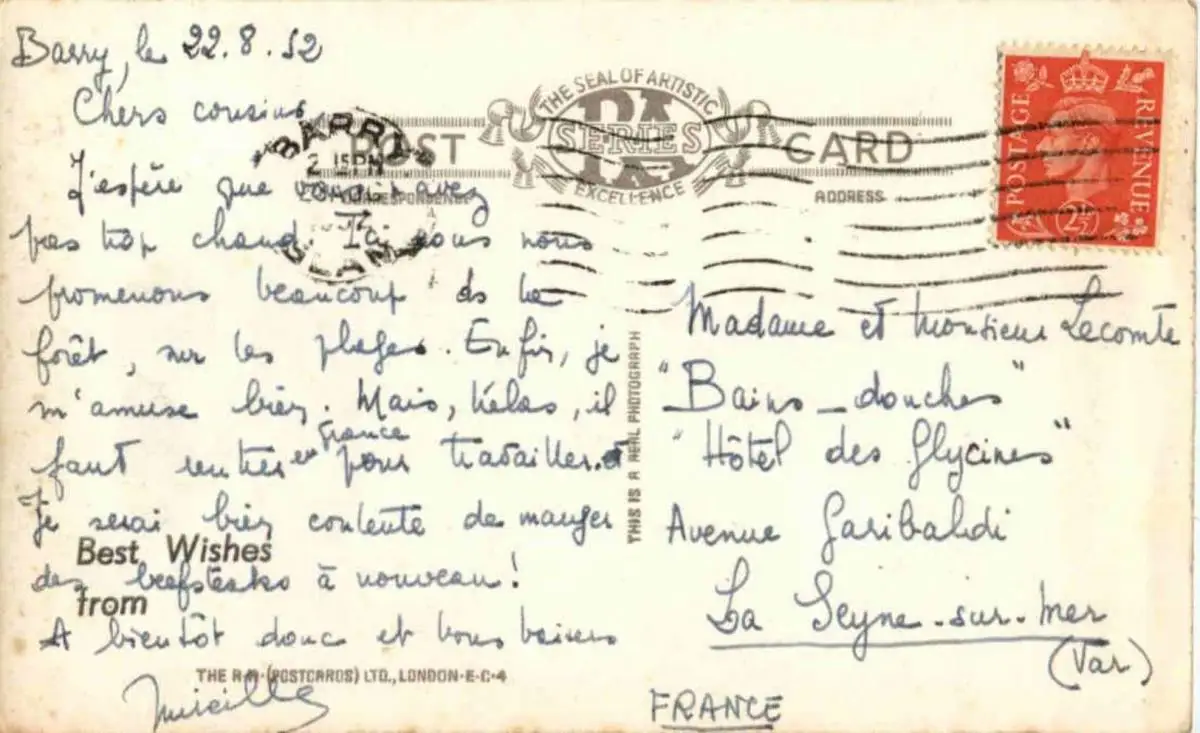 Barry, le 22.8.52
Chers cousins
J'espère que vous avez
pas trop chaud. Ici nous nous
promenons beaucoup ds la
forêt, sur les plages. Enfin, je
m'amuse bien. Mais, hélas, il
faut rentrer en France pour travailler.
Je serai bien contente de manger
des beefsteaks à nouveau!
A bientôt donc et bons baisers
Mireille
Best Wishes
from
THE R.A. (POSTCARDS) LTD., LONDON·E·C·4
POST CARD
THE SEAL OF ARTISTIC
RA
SERIES
EXCELLENCE
CORRESPONDENCE
ADDRESS
BARRY
2 15PM
ISLAND
POSTAGE
REVENUE
2½
THIS IS A REAL PHOTOGRAPH
Madame et Monsieur Lecomte
"Bains-douches"
"Hôtel des Glycines"
Avenue Garibaldi
La Seyne-sur-mer
(Var)
FRANCE